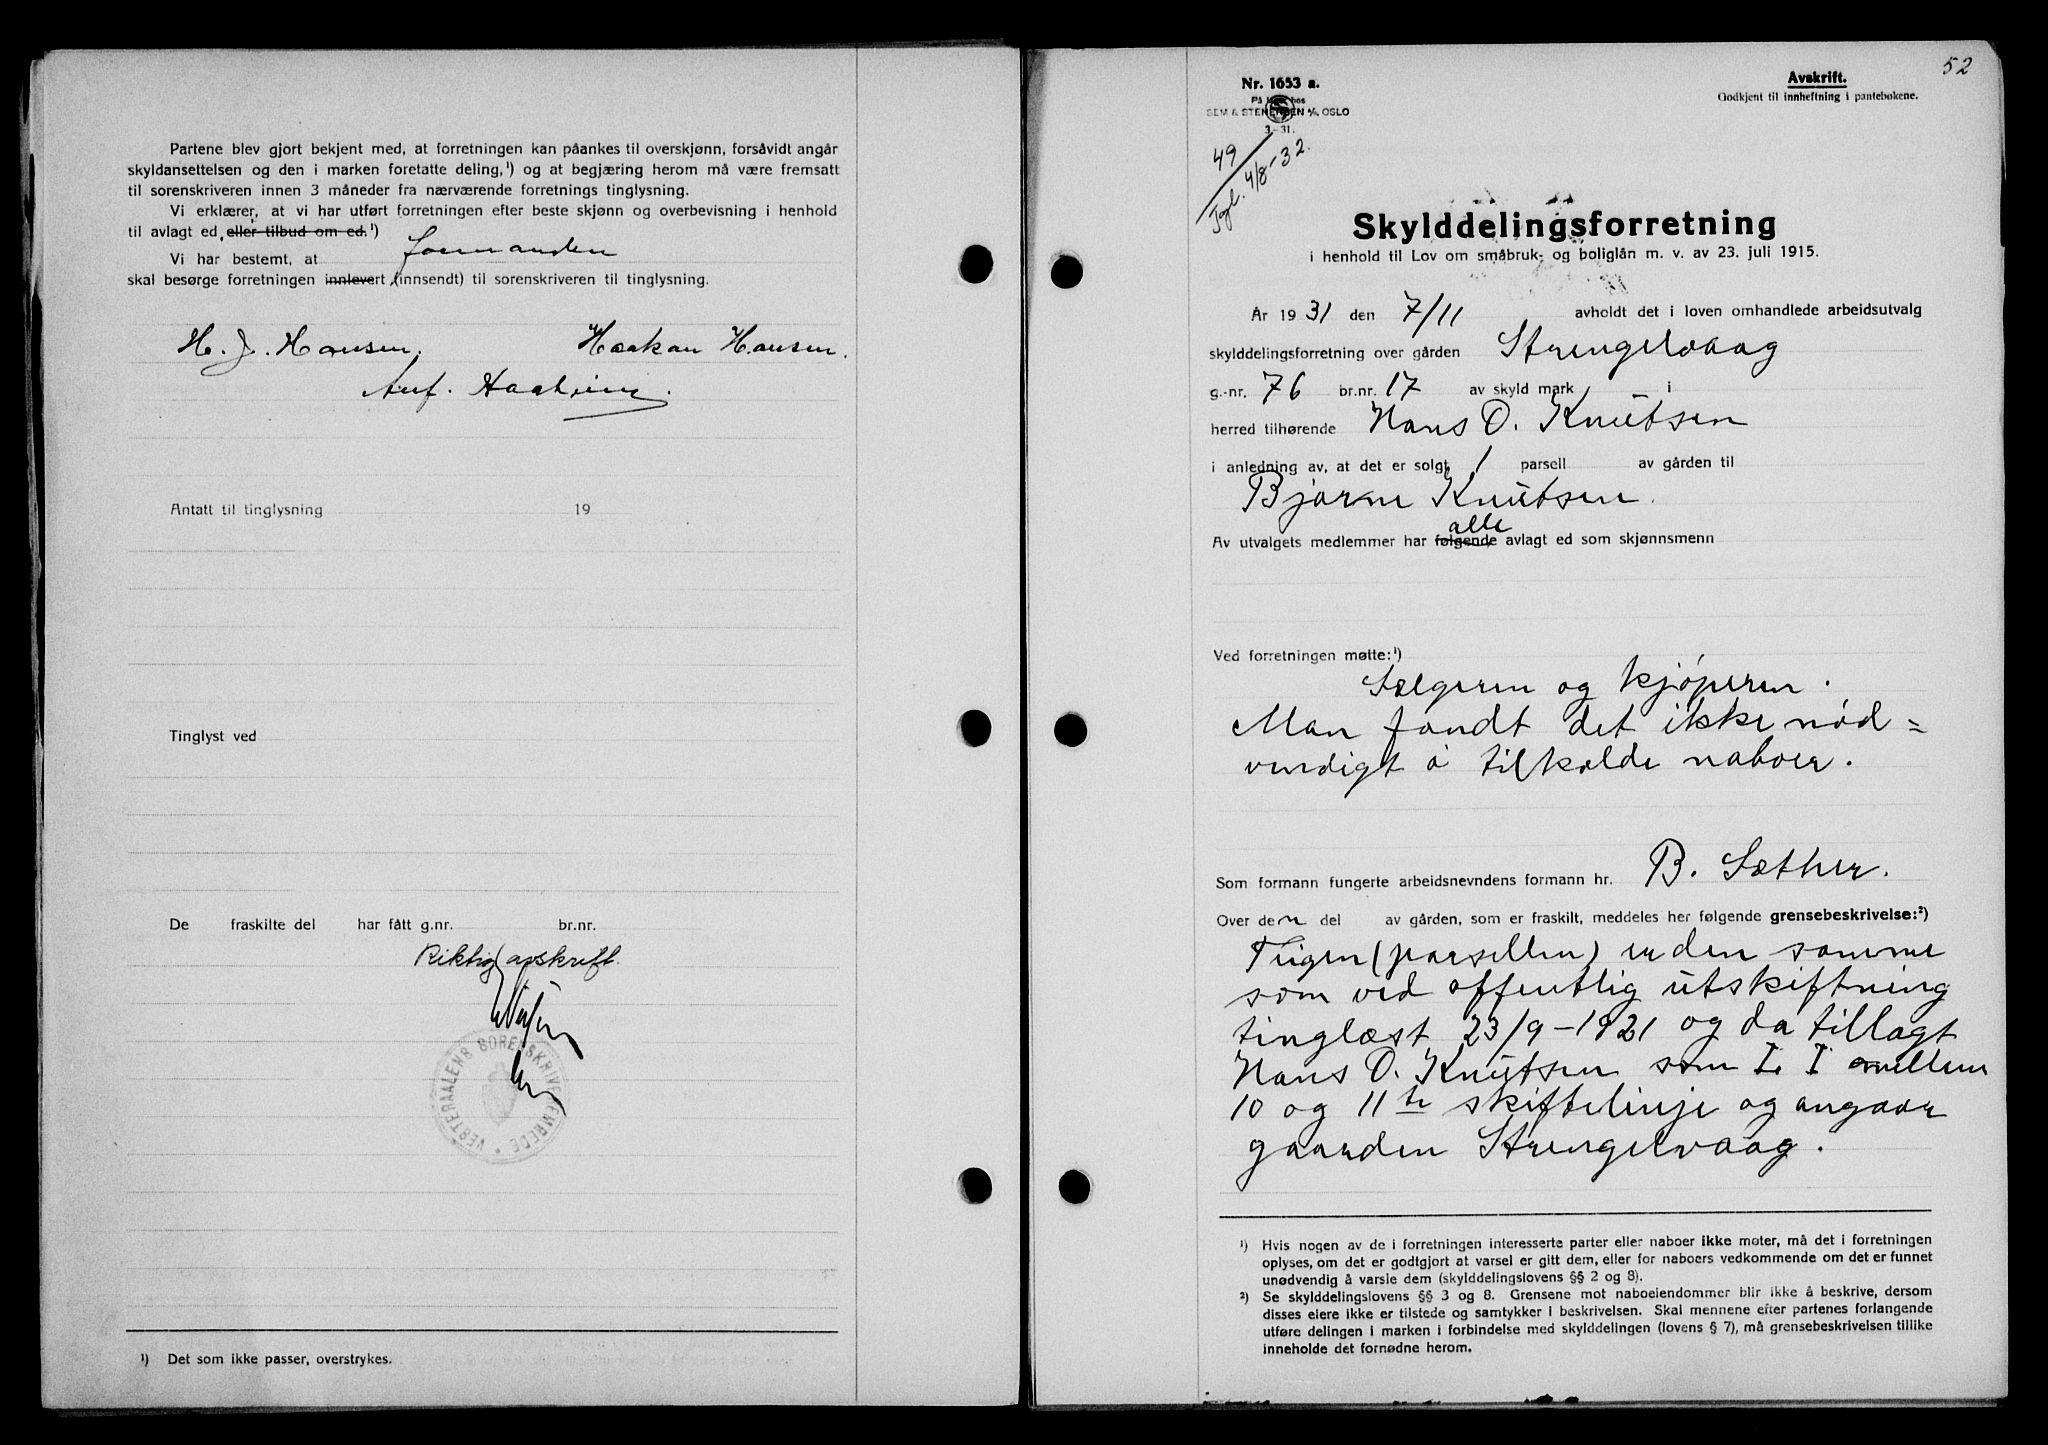 Partene blev gjort bekjent med, at forretningen kan påankes til overskjønn, forsåvidt angår
skyldansettelsen og den i marken foretatte deling,¹) og at begjæring herom må være fremsatt
til sorenskriveren innen 3 måneder fra nærværende forretnings tinglysning.
Vi erklærer, at vi har utført forretningen efter beste skjønn og overbevisning i henhold
til avlagt ed, eller tilbud om ed.¹)
Vi har bestemt, at formanden
skal besørge forretningen innlevert (innsendt) til sorenskriveren til tinglysning.
H. J. Hansen. Haakan Hansen.
Antatt til tinglysning 19
Tinglyst ved
De fraskilte del har fått g.nr. br.nr.
Riktig avskrift.
VESTERAALENS SORENSKRIVEREMBEDE
¹) Det som ikke passer, overstrykes.
52
Nr. 1653 a.
På lager hos
SEM & STENERSEN A/S, OSLO
3-31.
Avskrift.
Godkjent til innheftning i pantebøkene.
49
Tgl. 4/8-32.
Skylddelingsforretning
i henhold til Lov om småbruk- og boliglån m. v. av 23. juli 1915.
År 1931 den 7/11 avholdt det i loven omhandlede arbeidsutvalg
skylddelingsforretning over gården Strengelvaag
g.-nr. 76 br.nr. 17 av skyld mark i
herred tilhørende Hans O. Knutsen
i anledning av, at det er solgt 1 parsell av gården til
Bjarne Knutsen.
alle
Av utvalgets medlemmer har følgende avlagt ed som skjønnsmenn
Ved forretningen møtte:¹)
Sælgeren og kjøperen.
Man fandt det ikke nød=
vendigt å tilkalde naboer.
Som formann fungerte arbeidsnevndens formann hr. B. Sæther.
Over den del av gården, som er fraskilt, meddeles her følgende grensebeskrivelse:²)
Teigen (parsellen) er den samme
som ved offentlig utskiftning
tinglæst 23/9-1921 og da tillagt
Hans O. Knutsen som L. I mellem
10 og 11te skiftelinje og angaar
gaarden Strengelvaag.
¹) Hvis nogen av de i forretningen interesserte parter eller naboer ikke møter, må det i forretningen
oplyses, om det er godtgjort at varsel er gitt dem, eller for naboers vedkommende om det er funnet
unødvendig å varsle dem (skylddelingslovens §§ 2 og 8).
²) Se skylddelingslovens §§ 3 og 8. Grensene mot naboeiendommer blir ikke å beskrive, dersom
disses eiere ikke er tilstede og samtykker i beskrivelsen. Skal mennene efter partenes forlangende
utføre delingen i marken i forbindelse med skylddelingen (lovens § 7), må grensebeskrivelsen tillike
inneholde det fornødne herom.